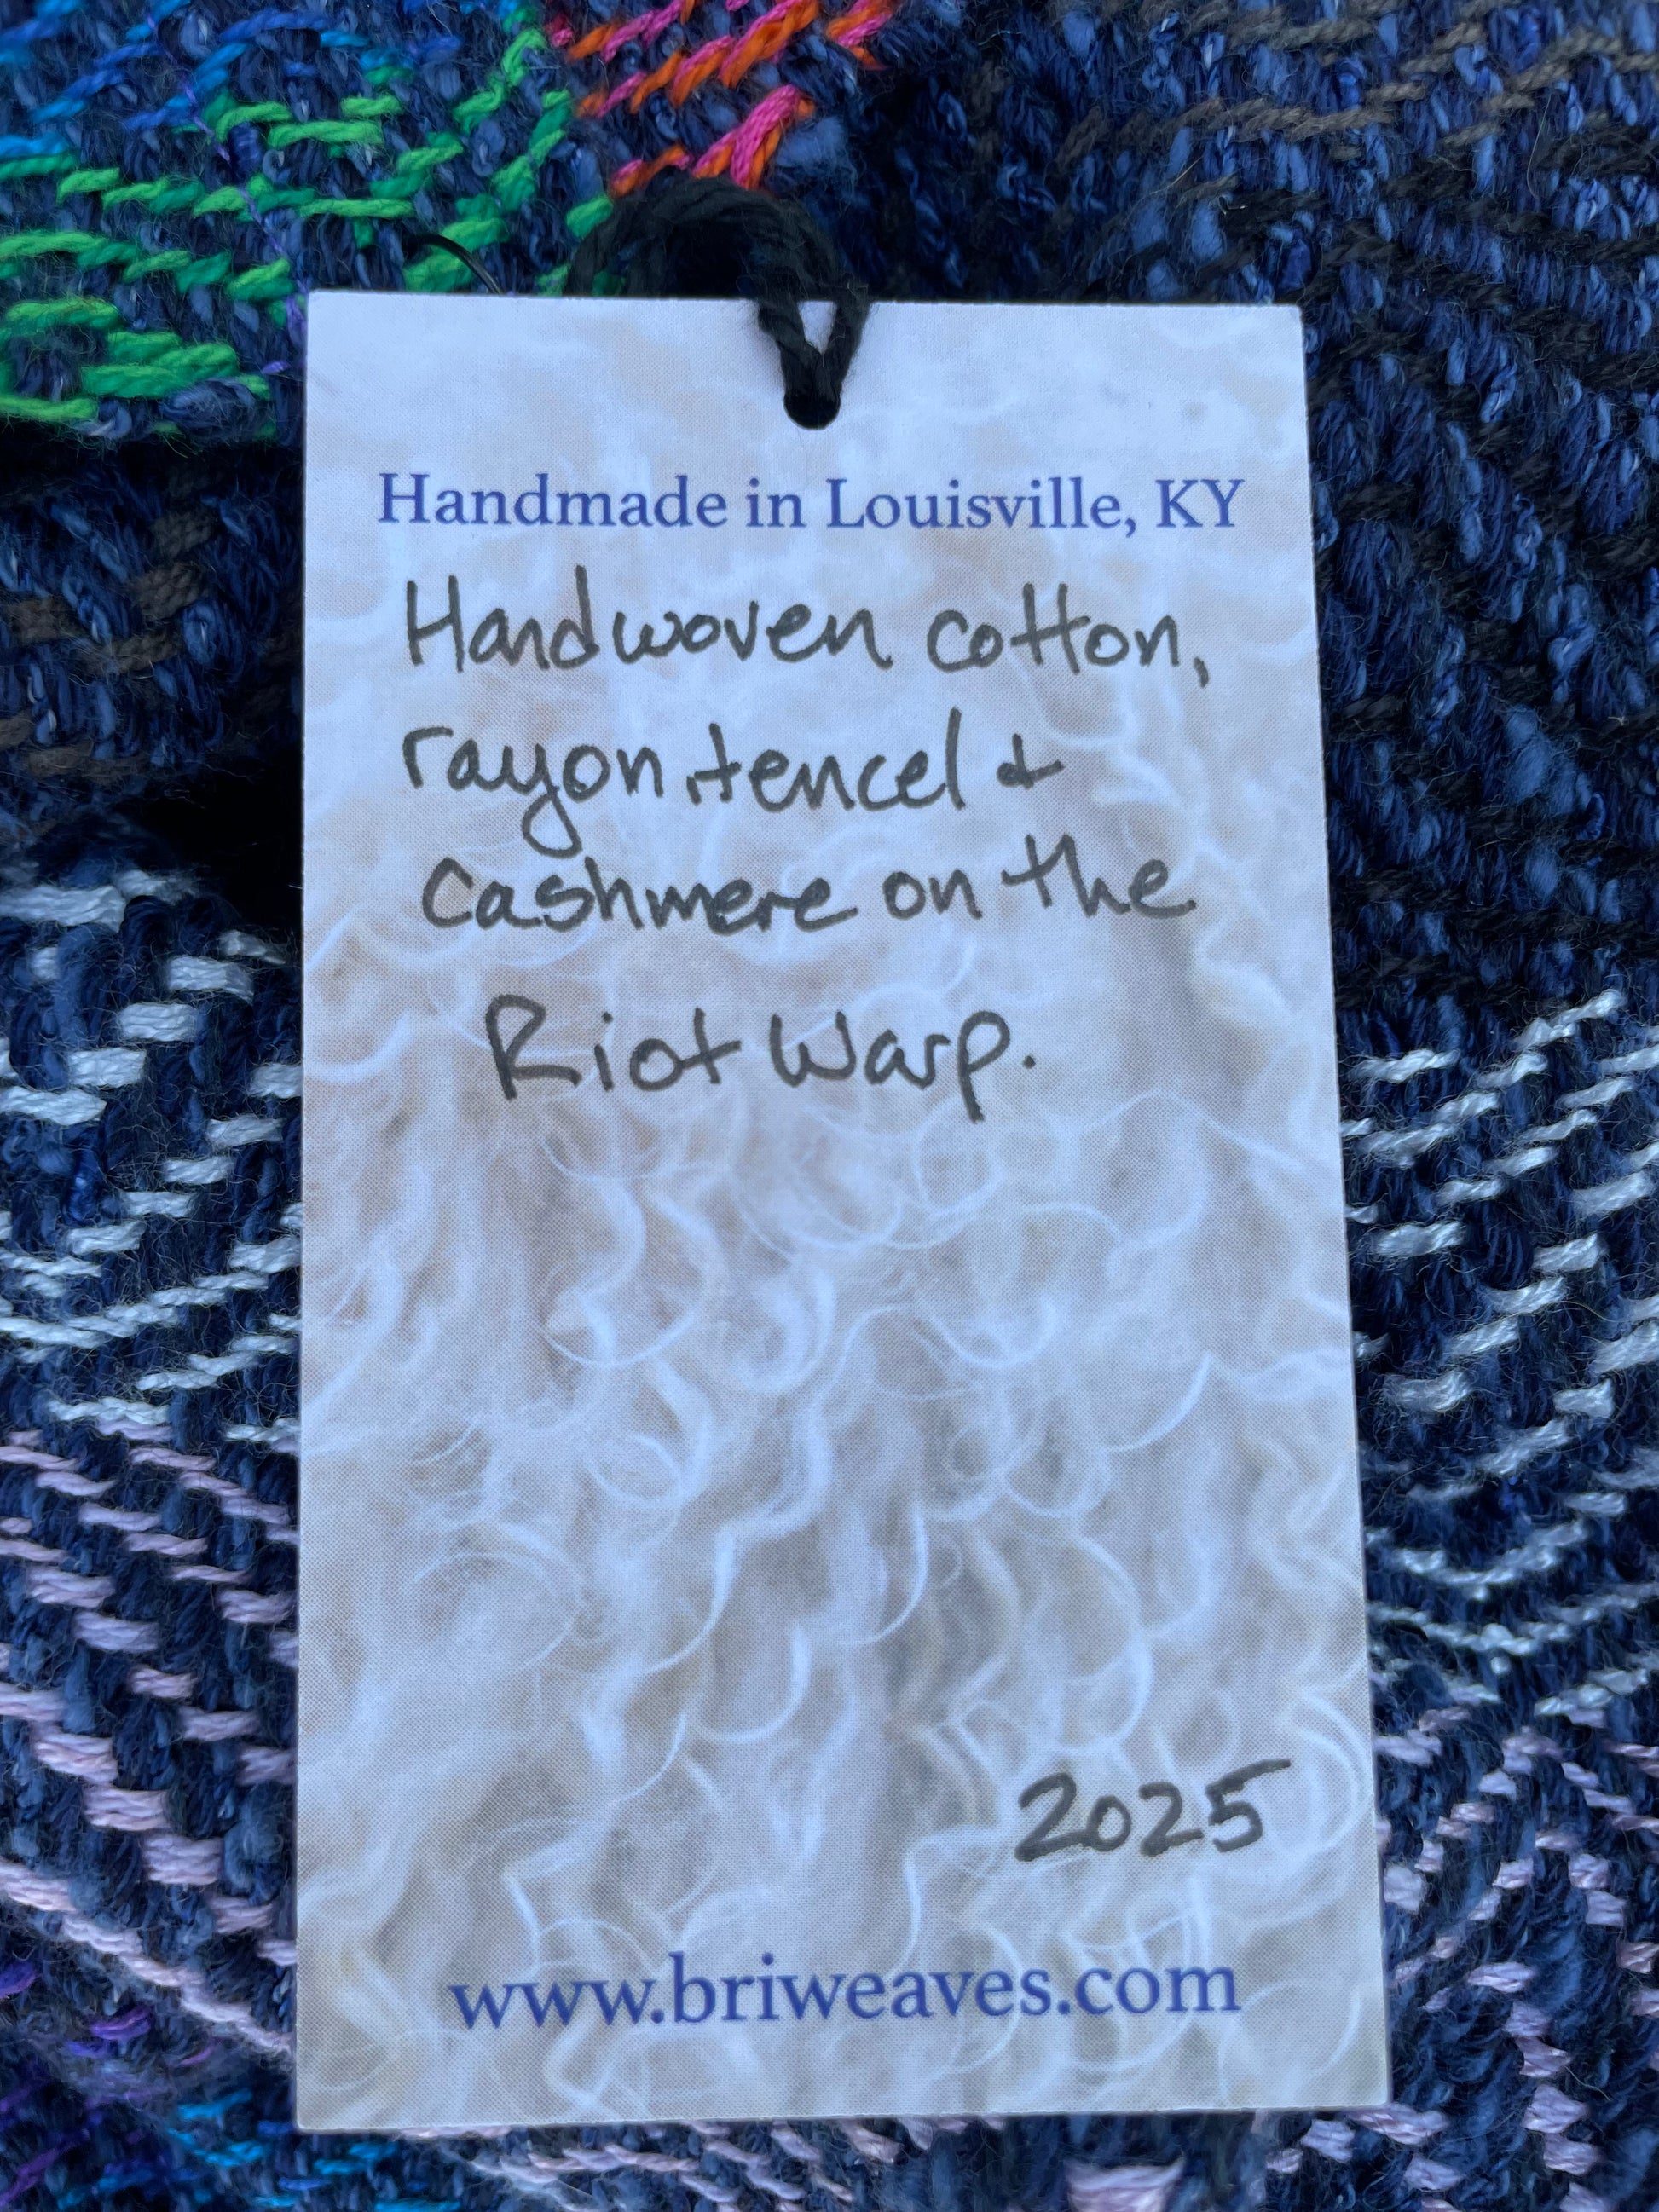 Handmade in Louisville, KY
Handwoven cotton,
rayon, tencel &
Cashmere on the
Riot Warp.
2025
www.briweaves.com